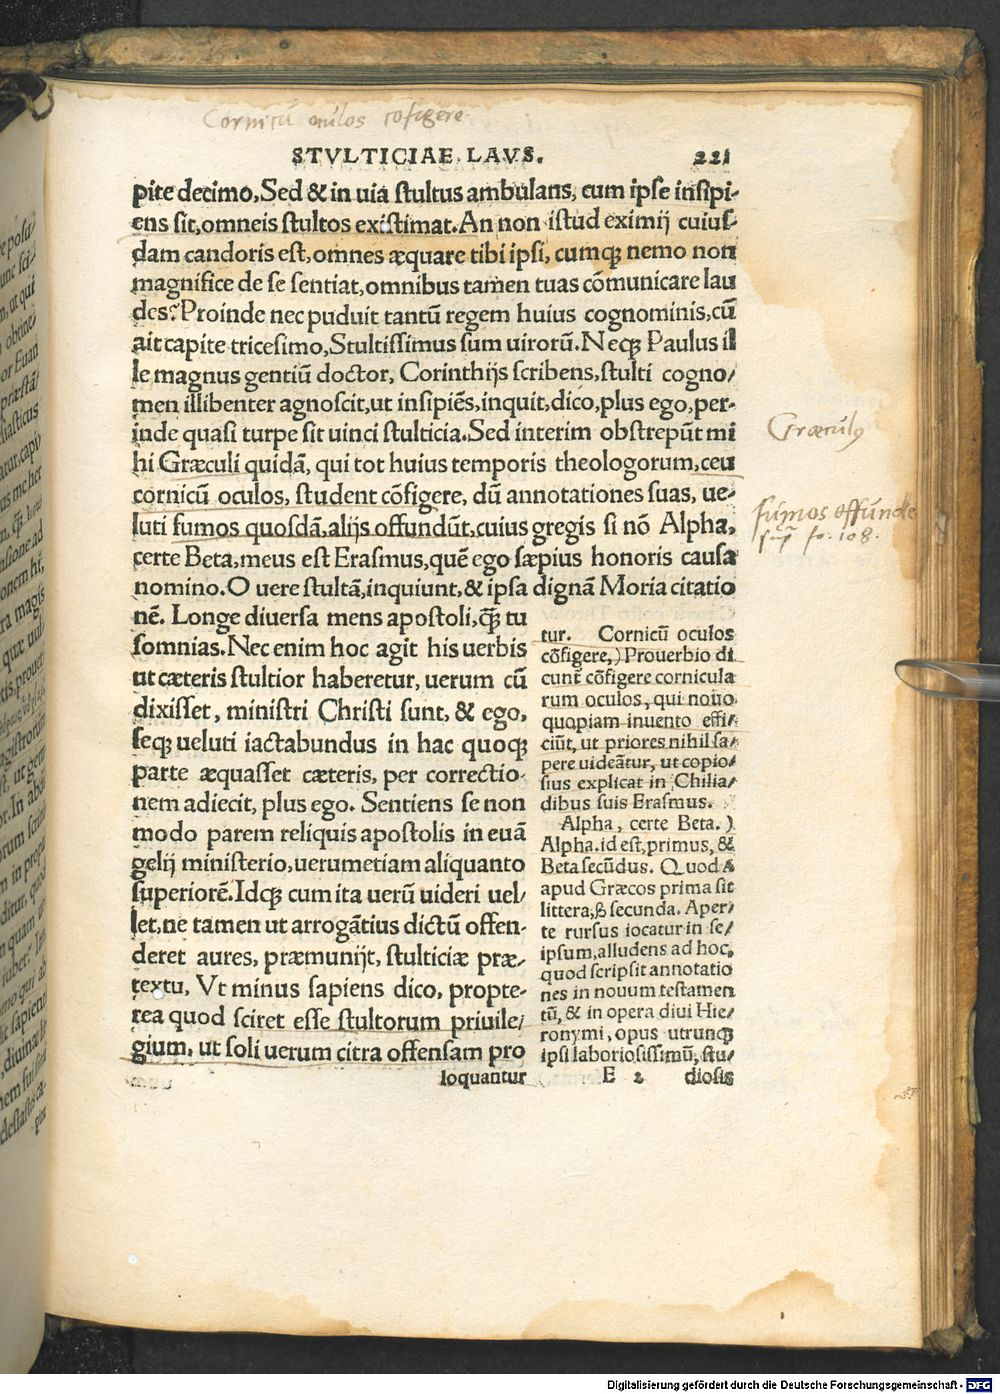 Cornicū oculos cōfigere.
STVLTICIAE. LAVS. 221
pite decimo, Sed & in uia stultus ambulans, cum ipse insipi-
ens sit, omneis stultos existimat. An non istud eximij cuius-
dam candoris est, omnes æquare tibi ipsi, cumqꝫ nemo non
magnifice de se sentiat, omnibus tamen tuas cōmunicare lau
des? Proinde nec puduit tantū regem huius cognominis, cū
ait capite tricesimo, Stultissimus sum uirorū. Neqꝫ Paulus il
le magnus gentiū doctor, Corinthijs scribens, stulti cogno/
men illibenter agnoscit, ut insipiēs, inquit, dico, plus ego, per-
inde quasi turpe sit uinci stulticia. Sed interim obstrepūt mi
hi Græculi quidā, qui tot huius temporis theologorum, ceu
cornicū oculos, student cōfigere, dū annotationes suas, ue-
luti fumos quosdā, alijs offundūt, cuius gregis si nō Alpha,
certe Beta, meus est Erasmus, quē ego sæpius honoris causa
nomino. O uere stultā, inquiunt, & ipsa dignā Moria citatio
nē. Longe diuersa mens apostoli, ꝙ̄ tu
somnias. Nec enim hoc agit his uerbis
ut cæteris stultior haberetur, uerum cū
dixisset, ministri Christi sunt, & ego,
seqꝫ ueluti iactabundus in hac quoqꝫ
parte æquasset cæteris, per correctio-
nem adiecit, plus ego. Sentiens se non
modo parem reliquis apostolis in euā
gelij ministerio, uerumetiam aliquanto
superiorē. Idqꝫ cum ita uerū uideri uel/
let, ne tamen ut arrogātius dictū offen-
deret aures, præmunijt, stulticiæ præ-
textu, Vt minus sapiens dico, propte-
rea quod sciret esse stultorum priuile/
gium, ut soli uerum citra offensam pro
loquantur
tur. Cornicū oculos
cōfigere,) Prouerbio di
cunt cōfigere cornicula
rum oculos, qui nouo
quopiam inuento effi/
ciūt, ut priores nihil sa/
pere uideātur, ut copio/
sius explicat in Chilia/
dibus suis Erasmus.
Alpha, certe Beta.)
Alpha. id est, primus, &
Beta secūdus. Quod A
apud Græcos prima sit
littera, ß secunda. Aper/
te rursus iocatur in se/
ipsum, alludens ad hoc,
quod scripsit annotatio
nes in nouum testamen
tū, & in opera diui Hie/
ronymi, opus utrunqꝫ
ipsi laboriosissimū, stu/
E 2 diosis
Græculꝰ
fumos effūnde
sup̄ fo. 108.
Digitalisierung gefördert durch die Deutsche Forschungsgemeinschaft - DFG